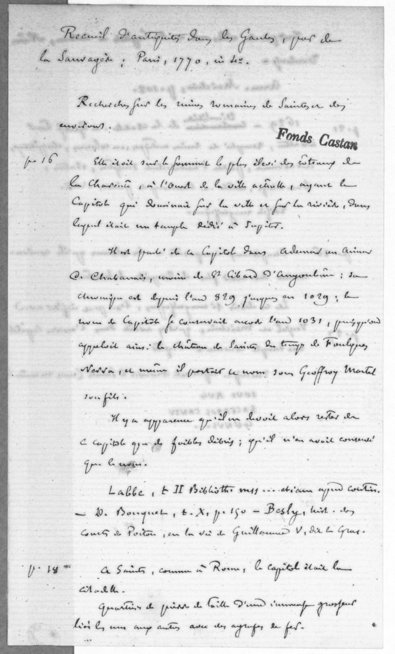 Recueil d'antiquités dans les Gaules, par de
la Sauvagère ; Paris, 1770, in 4º.
Recherches sur les ruines romaines de Saintes et des
environs.
Fonds Casian
p. 16 Elle était sur le sommet le plus élevé des côteaux de
la Charente, à l'ouest de la ville actuelle, ayant le
Capitole qui dominait sur la ville et sur la rivière, dans
lequel était un temple dédié à Jupiter.
Il est parlé de ce Capitole dans Ademar ou Aimar
de Chabanais, moine de St Cibard d'Angoulême ; sa
chronique est depuis l'an 829 jusques en 1029 ; le
nom de Capitole se conservait encore l'an 1031, puisqu'on
appeloit ainsi le château de Saintes du temps de Foulques
Nerra, et même il portait ce nom sous Geoffroy Martel
son fils.
Il y a apparence qu'il ne devoit alors rester de
ce capitole que de faibles débris ; qu'il n'en avait conservé
que le nom.
Labbe, t. II Biblioth. mss ...
— D. Bouquet, t. X, p. 150 — Besly, hist. des
comtes de Poitou, en la vie de Guillaume V, dit le Gras.
p. 18 A Saintes, comme à Rome, le capitole était la
citadelle.
Quartiers de pierre de taille d'une immense grosseur
liés les uns aux autres avec des agrafes de fer.